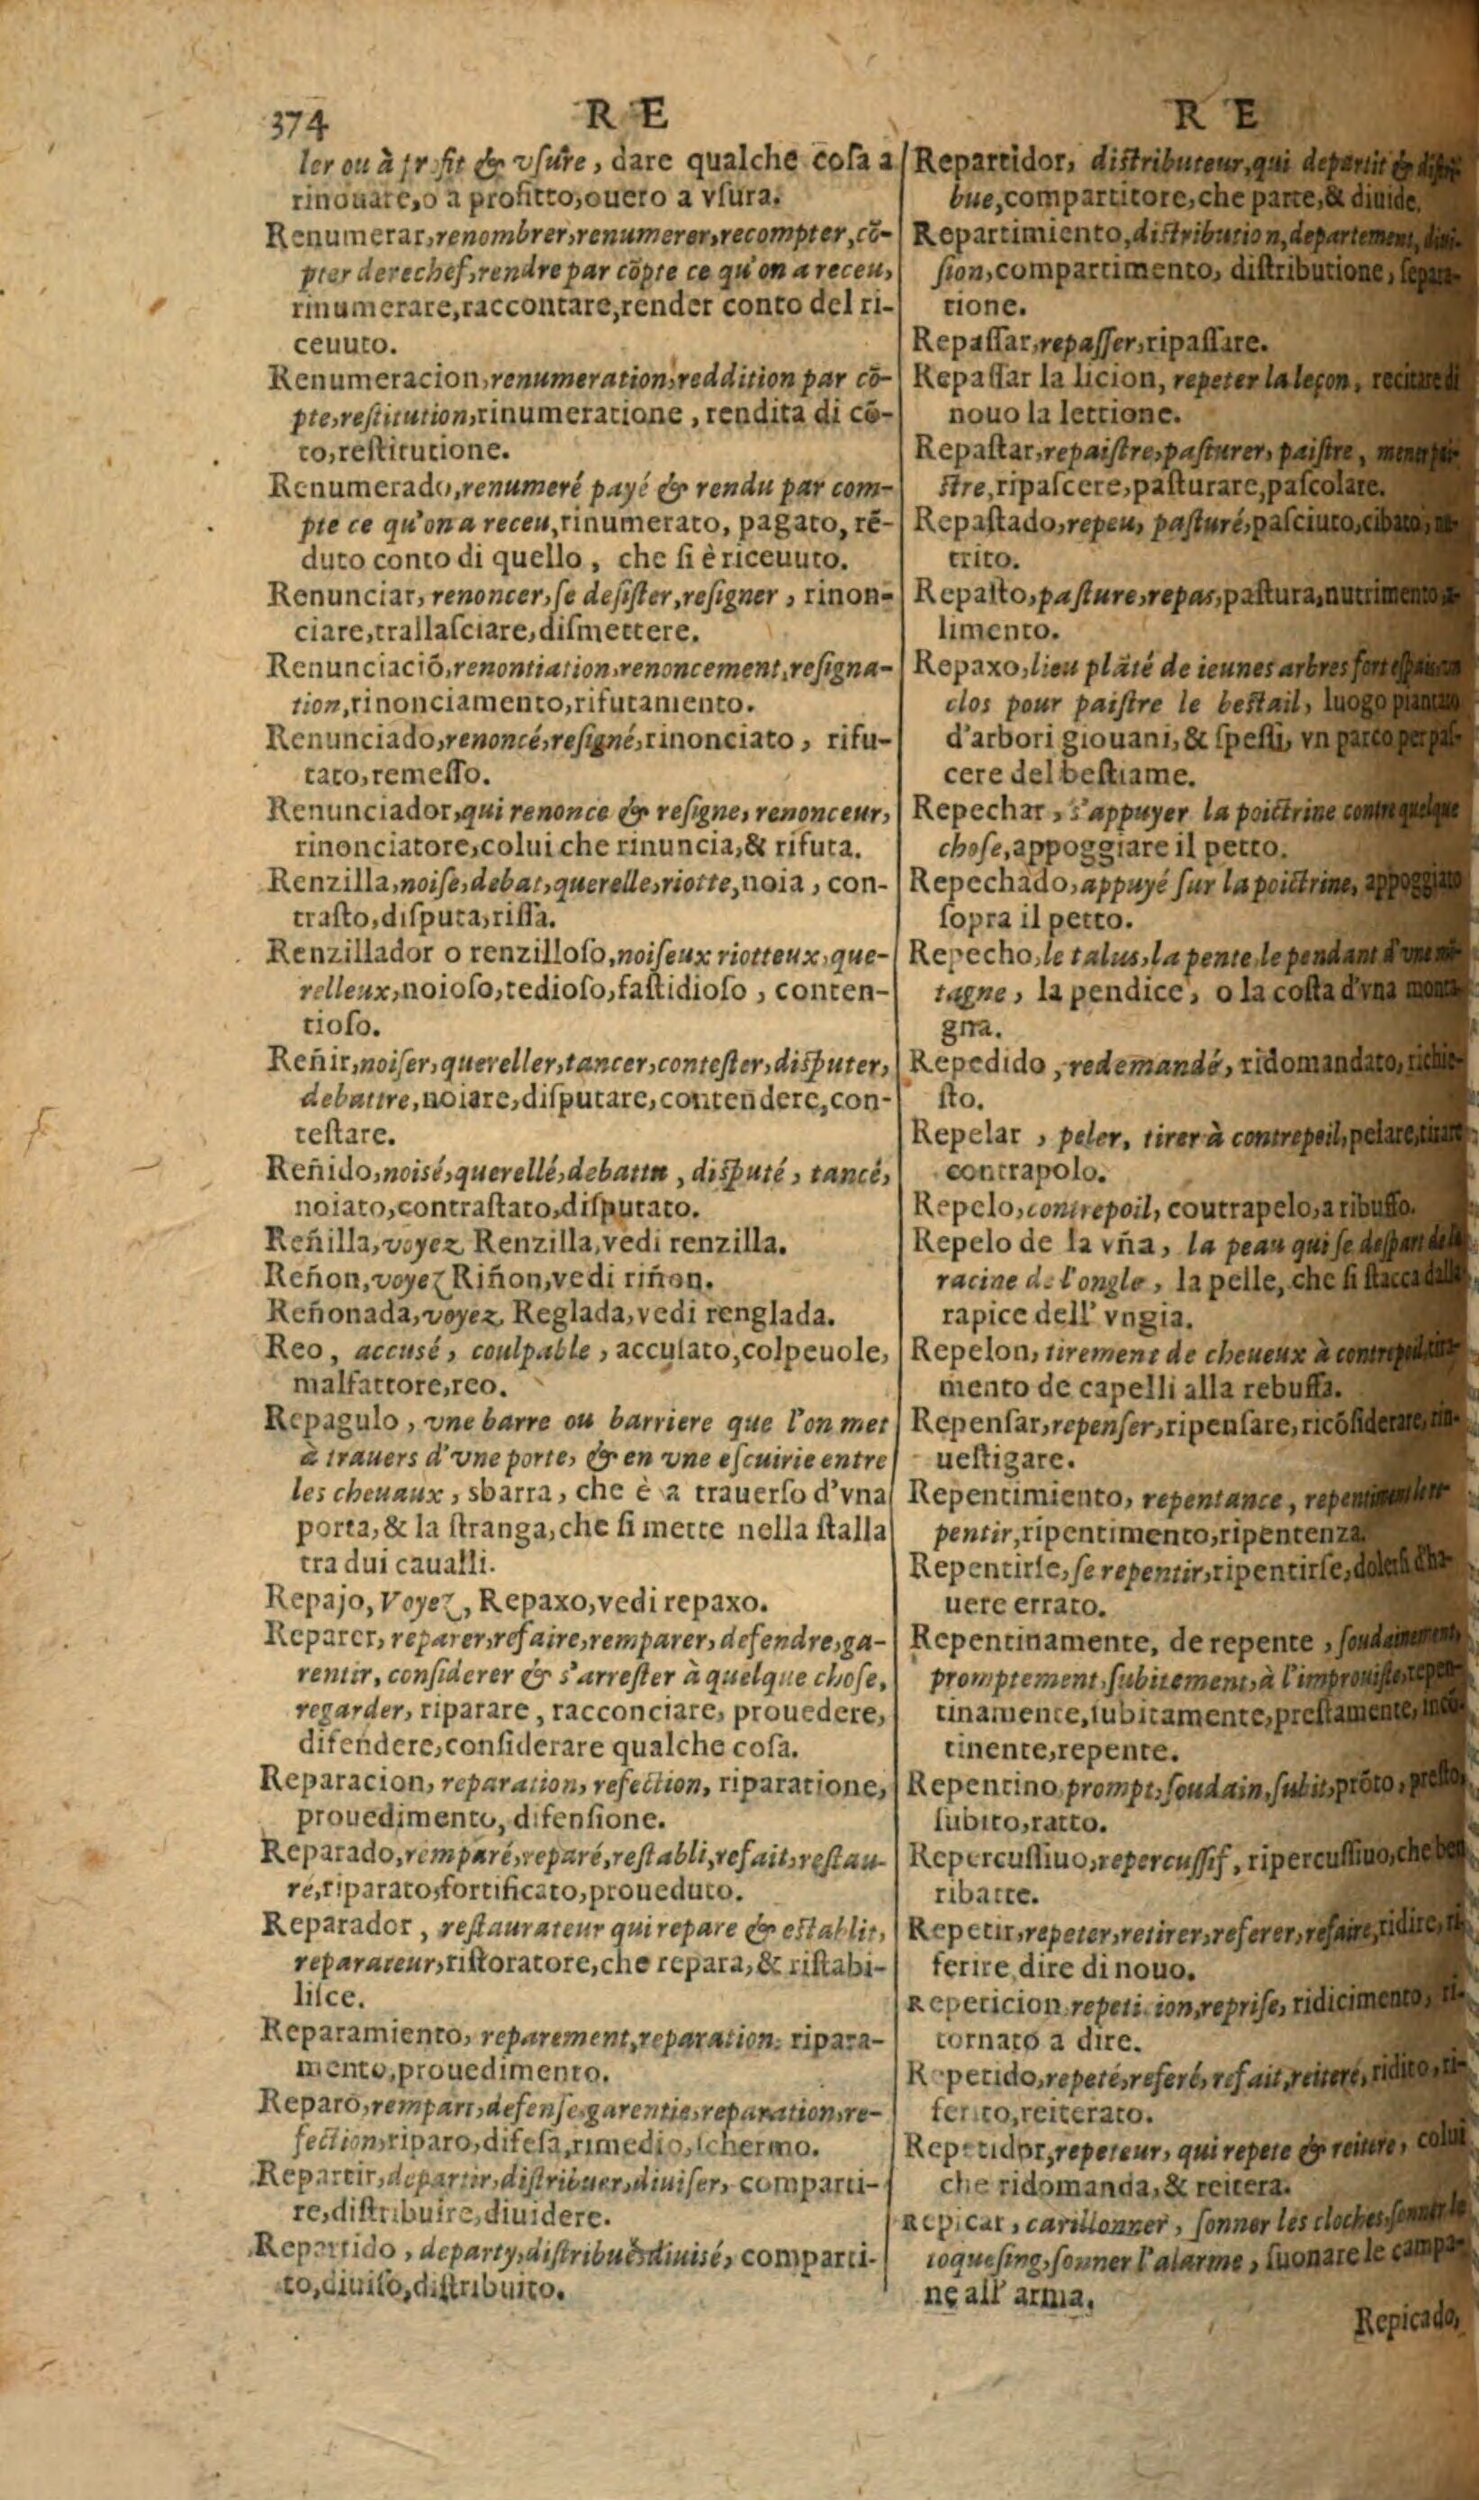 374
RE
RE
ler ou à profit & vſure, dare qualche coſa a
rinouare, o a profitto, ouero a vſura.
Renumerar, renombrer, renumerer, recompter, cõ-
pter derechef, rendre par cõpte ce qu'on a receu,
rinumerare, raccontare, render conto del ri-
ceuuto.
Renumeracion, renumeration, reddition par cõ-
pte, reſtitution, rinumeratione, rendita di cõ-
to, reſtitutione.
Renumerado, renumeré payé & rendu par com-
pte ce qu'on a receu, rinumerato, pagato, rẽ-
duto conto di quello, che ſi è riceuuto.
Renunciar, renoncer, ſe deſiſter, reſigner, rinon-
ciare, trallaſciare, diſmettere.
Renunciaciõ, renontiation, renoncement, reſigna-
tion, rinonciamento, rifutamento.
Renunciado, renoncé, reſigné, rinonciato, rifu-
tato, remeſſo.
Renunciador, qui renonce & reſigne, renonceur,
rinonciatore, colui che rinuncia, & rifuta.
Renzilla, noiſe, debat, querelle, riotte, noia, con-
traſto, diſputa, riſſa.
Renzillador o renzilloſo, noiſeux riotteux, que-
relleux, noioſo, tedioſo, faſtidioſo, conten-
tioſo.
Reñir, noiſer, quereller, tancer, conteſter, diſputer,
debattre, noiare, diſputare, contendere, con-
teſtare.
Reñido, noisé, querellé, debattu, diſputé, tancé,
noiato, contraſtato, diſputato.
Reñilla, voyez Renzilla, vedi renzilla.
Reñon, voyez Riñon, vedi riñon.
Reñonada, voyez Reglada, vedi renglada.
Reo, accusé, coulpable, accuſato, colpeuole,
malfattore, reo.
Repagulo, vne barre ou barriere que l'on met
à trauers d'vne porte, & en vne eſcuirie entre
les cheuaux, sbarra, che è a trauerſo d'vna
porta, & la ſtranga, che ſi mette nella ſtalla
tra dui caualli.
Repajo, Voyez, Repaxo, vedi repaxo.
Reparer, reparer, refaire, remparer, defendre, ga-
rentir, conſiderer & s'arreſter à quelque choſe,
regarder, riparare, racconciare, prouedere,
difendere, conſiderare qualche coſa.
Reparacion, reparation, refection, riparatione,
prouedimento, difenſione.
Reparado, remparé, reparé, reſtabli, refait, reſtau-
ré, riparato, fortificato, proueduto.
Reparador, reſtaurateur qui repare & eſtablit,
reparateur, riſtoratore, che repara, & riſtabi-
liſce.
Reparamiento, reparement, reparation. ripara-
mento, prouedimento.
Reparo, rempart, defenſe, garentie, reparation, re-
fection, riparo, difeſa, rimedio, ſchermo.
Repartir, departir, diſtribuer, diuiſer, comparti-
re, diſtribuire, diuidere.
Repartido, departy, diſtribué, diuisé, comparti-
to, diuiſo, diſtribuito.
Repartidor, diſtributeur, qui departit & diſtri-
bue, compartitore, che parte, & diuide.
Repartimiento, diſtribution, departement, diui-
ſion, compartimento, diſtributione, ſepara-
tione.
Repaſſar, repaſſer, ripaſſare.
Repaſſar la licion, repeter la leçon, recitare di
nouo la lettione.
Repaſtar, repaiſtre, paſturer, paiſtre, mener pai-
ſtre, ripaſcere, paſturare, paſcolare.
Repaſtado, repeu, paſturé, paſciuto, cibato, nu-
trito.
Repaſto, paſture, repas, paſtura, nutrimento, a-
limento.
Repaxo, lieu plãté de ieunes arbres fort eſpais, ou
clos pour paiſtre le beſtail, luogo piantato
d'arbori giouani, & ſpeſſi, vn parco per paſ-
cere del beſtiame.
Repechar, s'appuyer la poictrine contre quelque
choſe, appoggiare il petto.
Repechado, appuyé ſur la poictrine, appoggiato
ſopra il petto.
Repecho, le talus, la pente, le pendant d'vne mõ-
tagne, la pendice, o la coſta d'vna monta-
gna.
Repedido, redemandé, ridomandato, richie-
ſto.
Repelar, peler, tirer à contrepoil, pelare, tirare
contrapolo.
Repelo, contrepoil, coutrapelo, a ribuffo.
Repelo de la vña, la peau qui ſe deſpart de la
racine de l'ongle, la pelle, che ſi ſtacca dalla
rapice dell' vngia.
Repelon, tirement de cheueux à contrepoil, tira-
mento de capelli alla rebuffa.
Repenſar, repenſer, ripenſare, ricõſiderare, rin-
ueſtigare.
Repentimiento, repentance, repentiment, le re-
pentir, ripentimento, ripentenza.
Repentirſe, ſe repentir, ripentirſe, dolerſi d'ha-
uere errato.
Repentinamente, de repente, ſoudainement,
promptement, ſubitement, à l'improuiſte, repen-
tinamente, ſubitamente, preſtamente, incõ-
tinente, repente.
Repentino prompt, ſoudain, ſubit, prõto, preſto,
ſubito, ratto.
Repercuſſiuo, repercuſſif, ripercuſſiuo, che ben
ribatte.
Repetir, repeter, retirer, referer, refaire, ridire, ri-
ferire, dire di nouo.
Repeticion, repetition, repriſe, ridicimento, ri-
tornato a dire.
Repetido, repeté, referé, refait, reiteré, ridito, ri-
ferito, reiterato.
Repetidor, repeteur, qui repete & reitere, colui
che ridomanda, & reitera.
Repicar, carillonner, ſonner les cloches, ſonner le
toqueſing, ſonner l'alarme, ſuonare le campa-
ne all' arma.
Repicado,